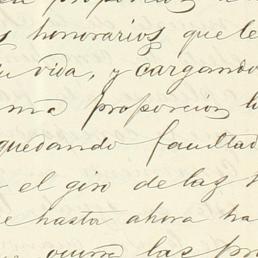 proporcion
honorarios que le
vida, y cargando
ma proporcion
quedando facultad
el giro de las
hasta ahora ha
las pr